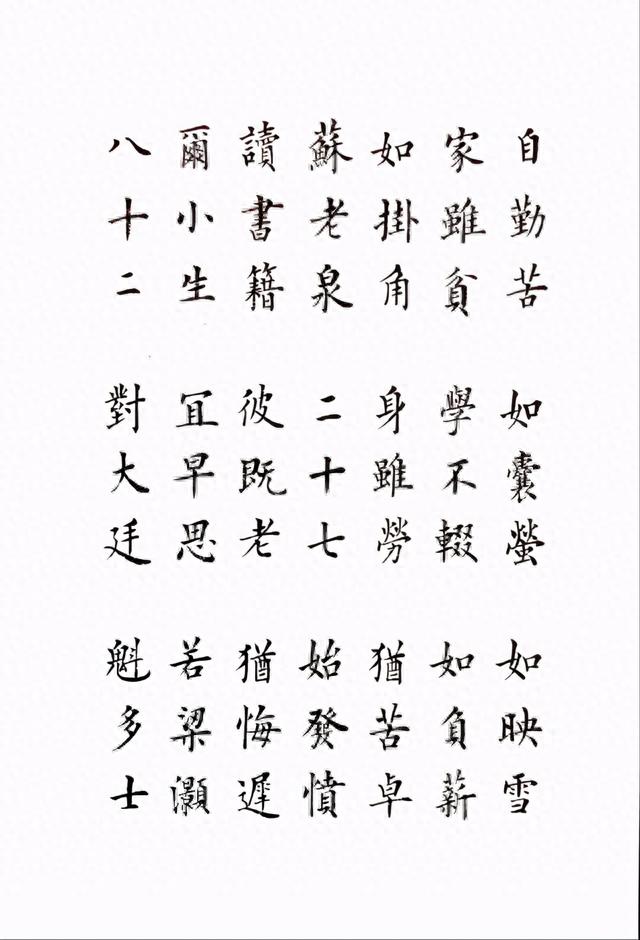 自勤苦 如囊螢 如映雪
家雖貧 學不輟 如負薪
如掛角 身雖勞 猶苦卓
蘇老泉 二十七 始發憤
讀書籍 彼既老 猶悔遲
爾小生 冝早思 若梁灝
八十二 對大廷 魁多士